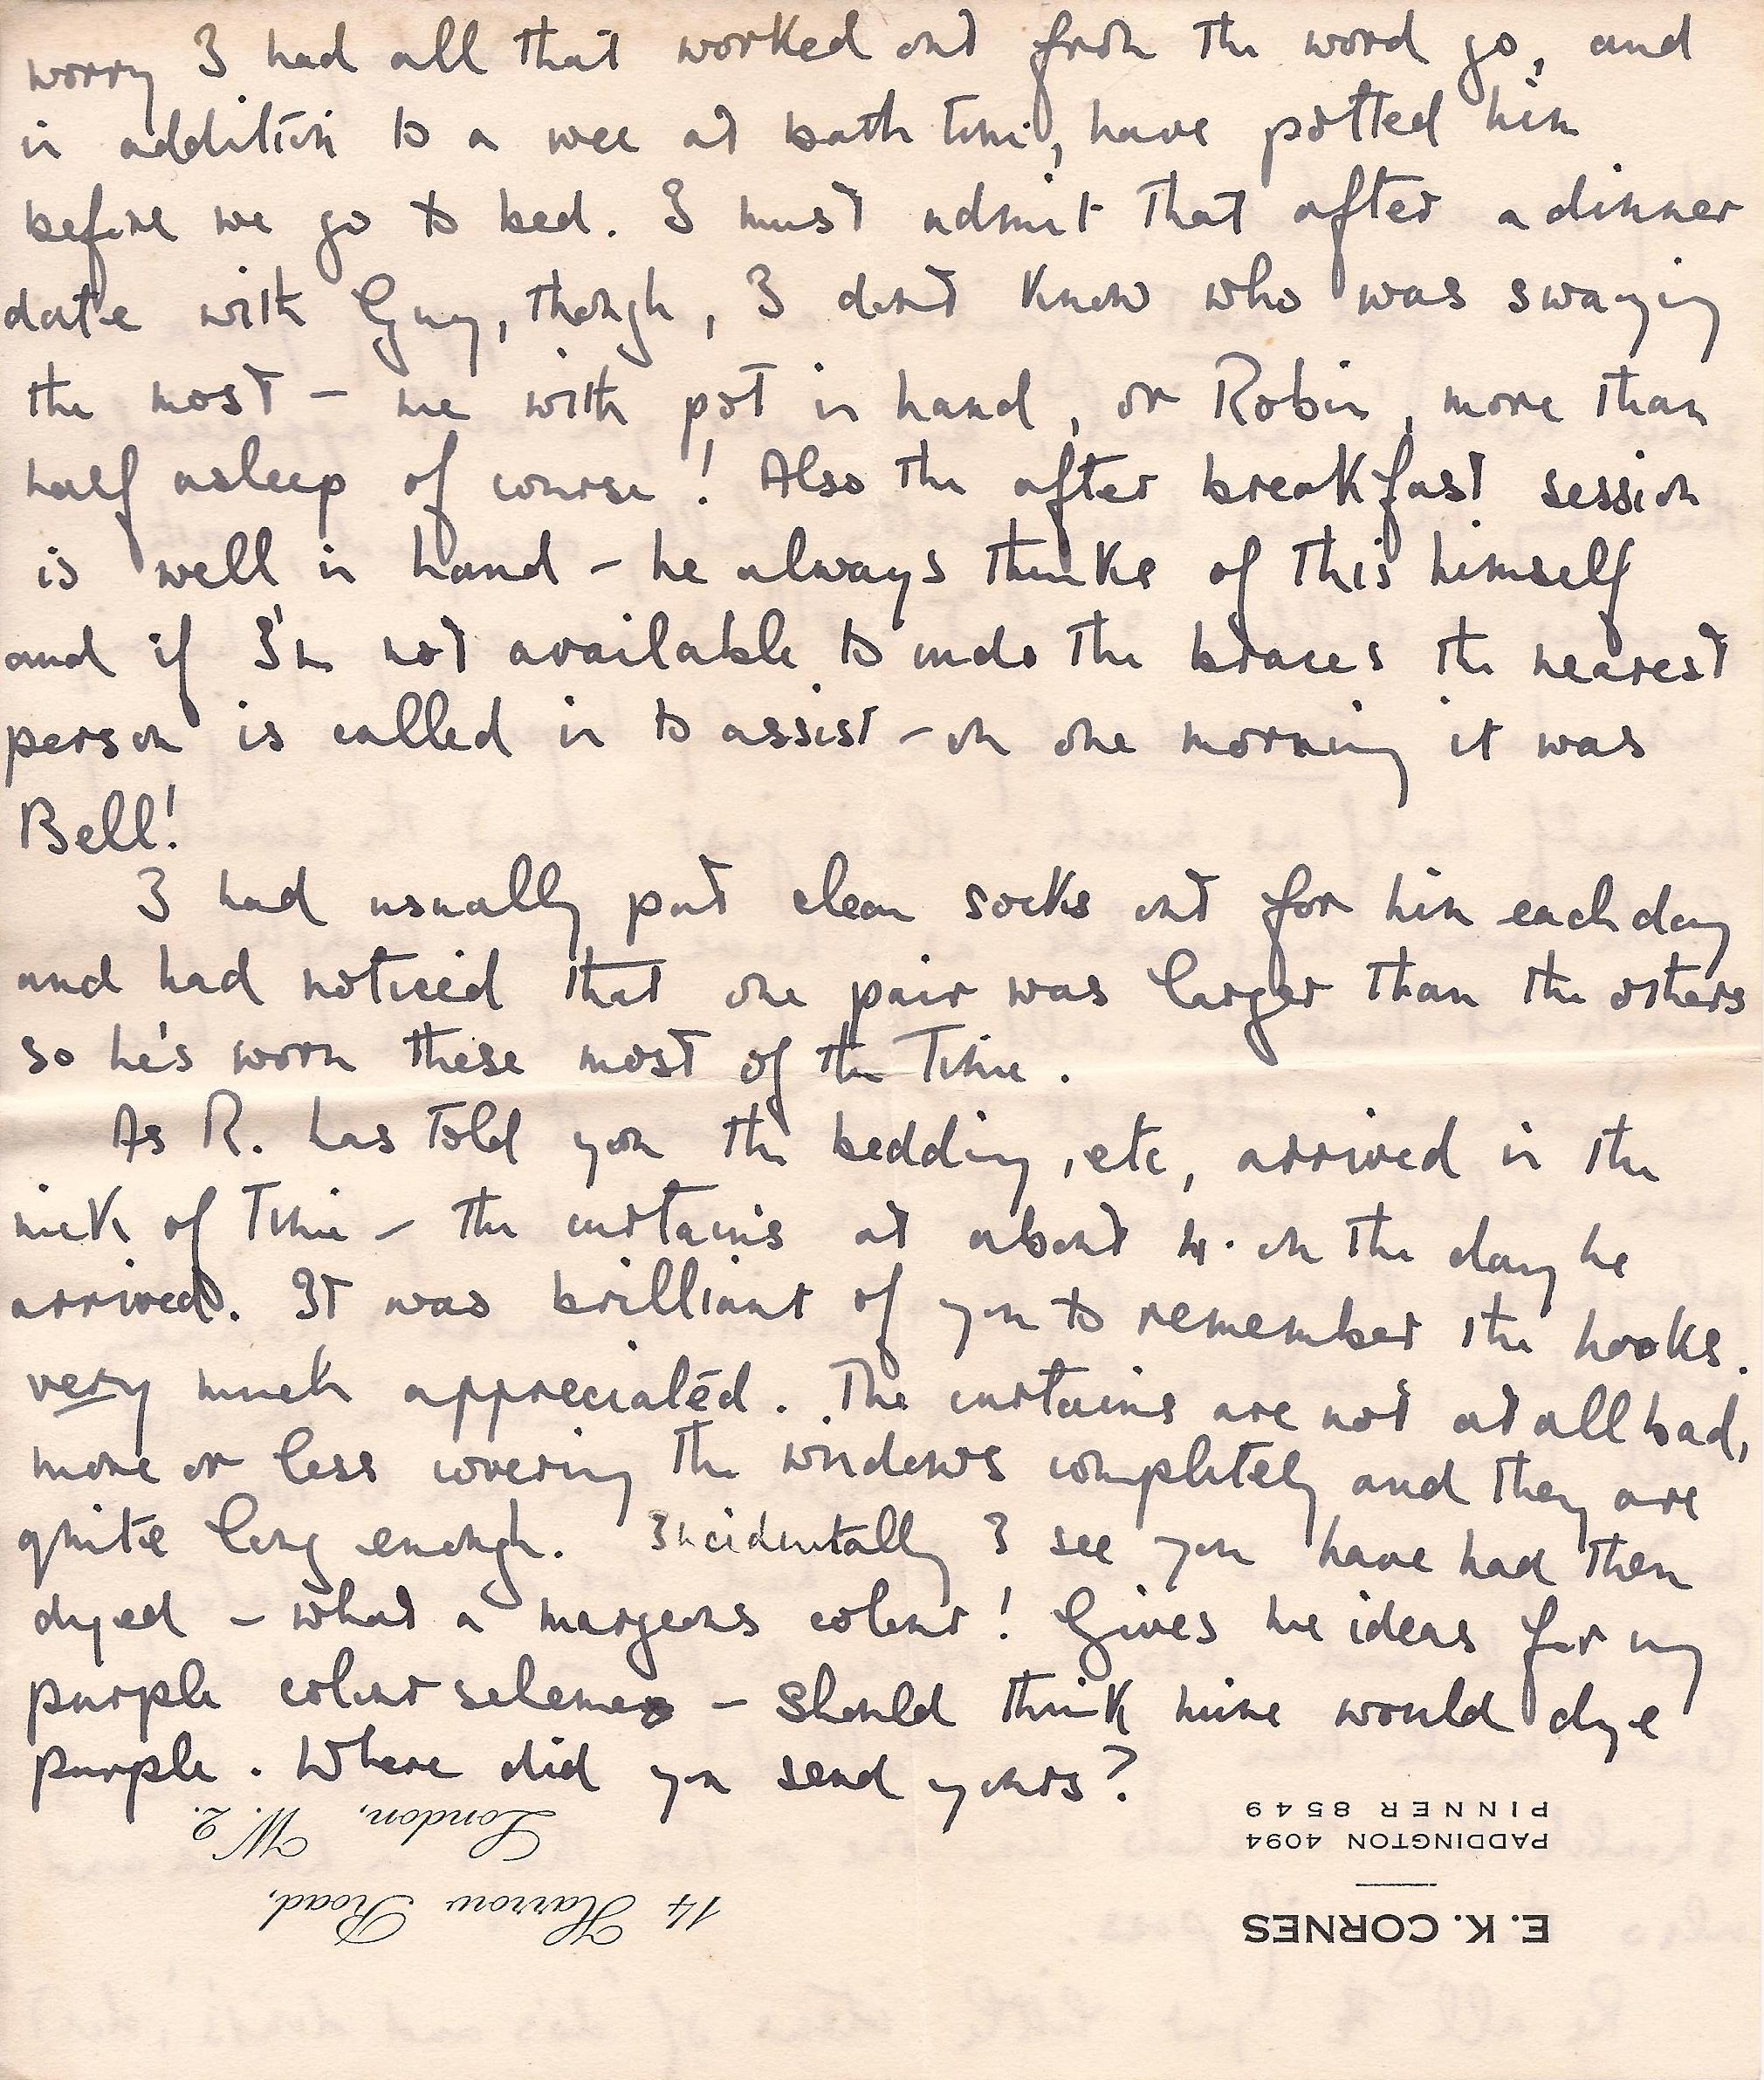 worry I had all that worked out from the word go, and
in addition to a wee at bath time, have potted him
before we go to bed. I must admit that after a dinner
date with Guy, though, I don't know who was swaying
the most – me with pot in hand, or Robin, more than
half asleep of course! Also the after breakfast session
is well in hand – he always thinks of this himself
and if I'm not available to undo the braces the nearest
person is called in to assist – on one morning it was
Bell!
I had usually put clean socks out for him each day
and had noticed that one pair was larger than the others
so he's worn these most of the time.
As R. has told you the bedding, etc, arrived in the
nick of time – the curtains at about 4. on the day he
arrived. It was brilliant of you to remember the hooks.
very much appreciated. The curtains are not at all bad,
more or less covering the windows completely and they are
quite long enough. Incidentally I see you have had them
dyed – what a margeous colour! Gives me ideas for my
purple colour scheme – should think mine would dye
purple. Where did you send yours?
E. K. CORNES
PADDINGTON 4094
PINNER 8549
14 Harrow Road,
London, W.2.